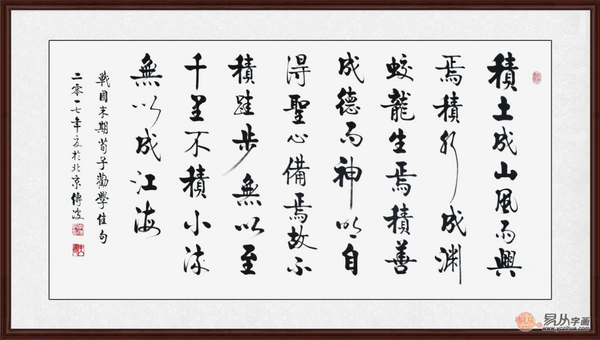 積土成山風雨興
焉積水成渊
蛟龍生焉積善
成德而神明自
得聖心備焉故不
積跬步無以至
千里不積小流
無以成江海
戰国末期荀子勸學佳句
二零一七年於北京
易从字画
www.yczihua.com